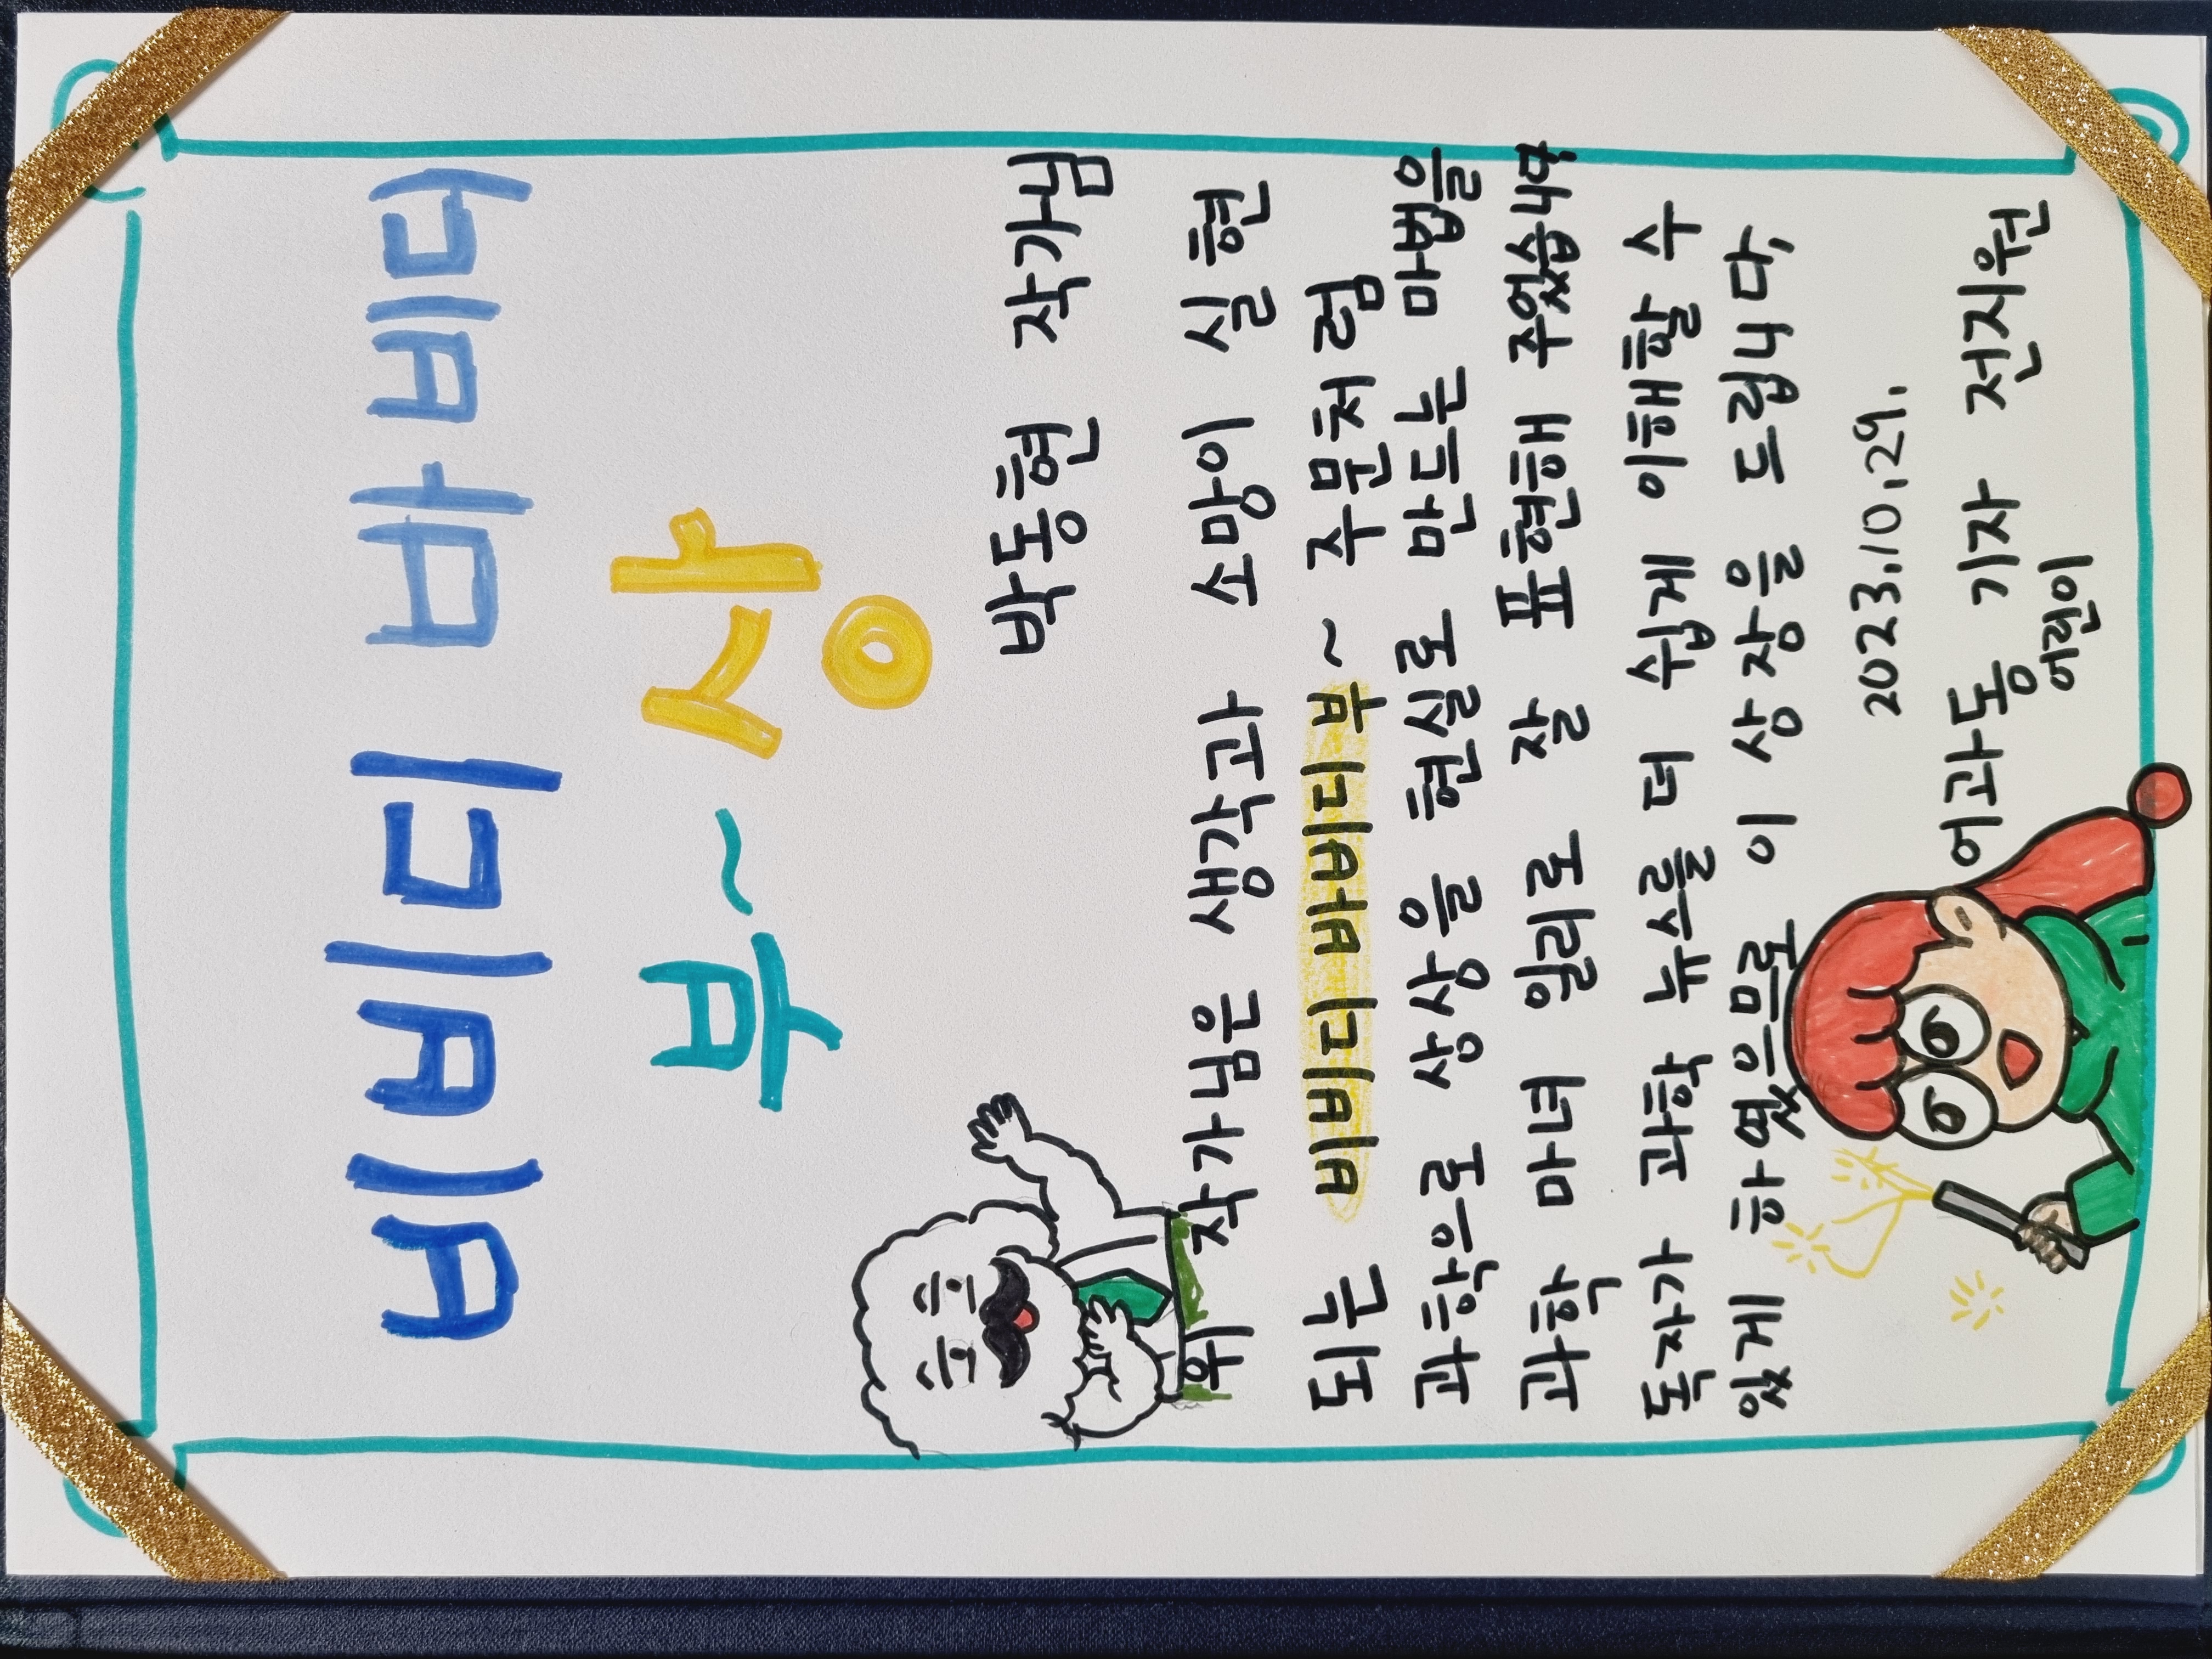 비비디 바비디
부~ 상
박동현 작가님
위 작가님은 생각과 소망이 실현
되는 비비디바비디부~ 주문처럼
과학으로 상상을 현실로 만드는 마법을
과학 마녀 일리로 잘 표현해 주었습니다.
독자가 과학 뉴스를 더 쉽게 이해할 수
있게 하였으므로 이 상장을 드립니다.
2023.10.29.
어과동 기자 전지원
어린이